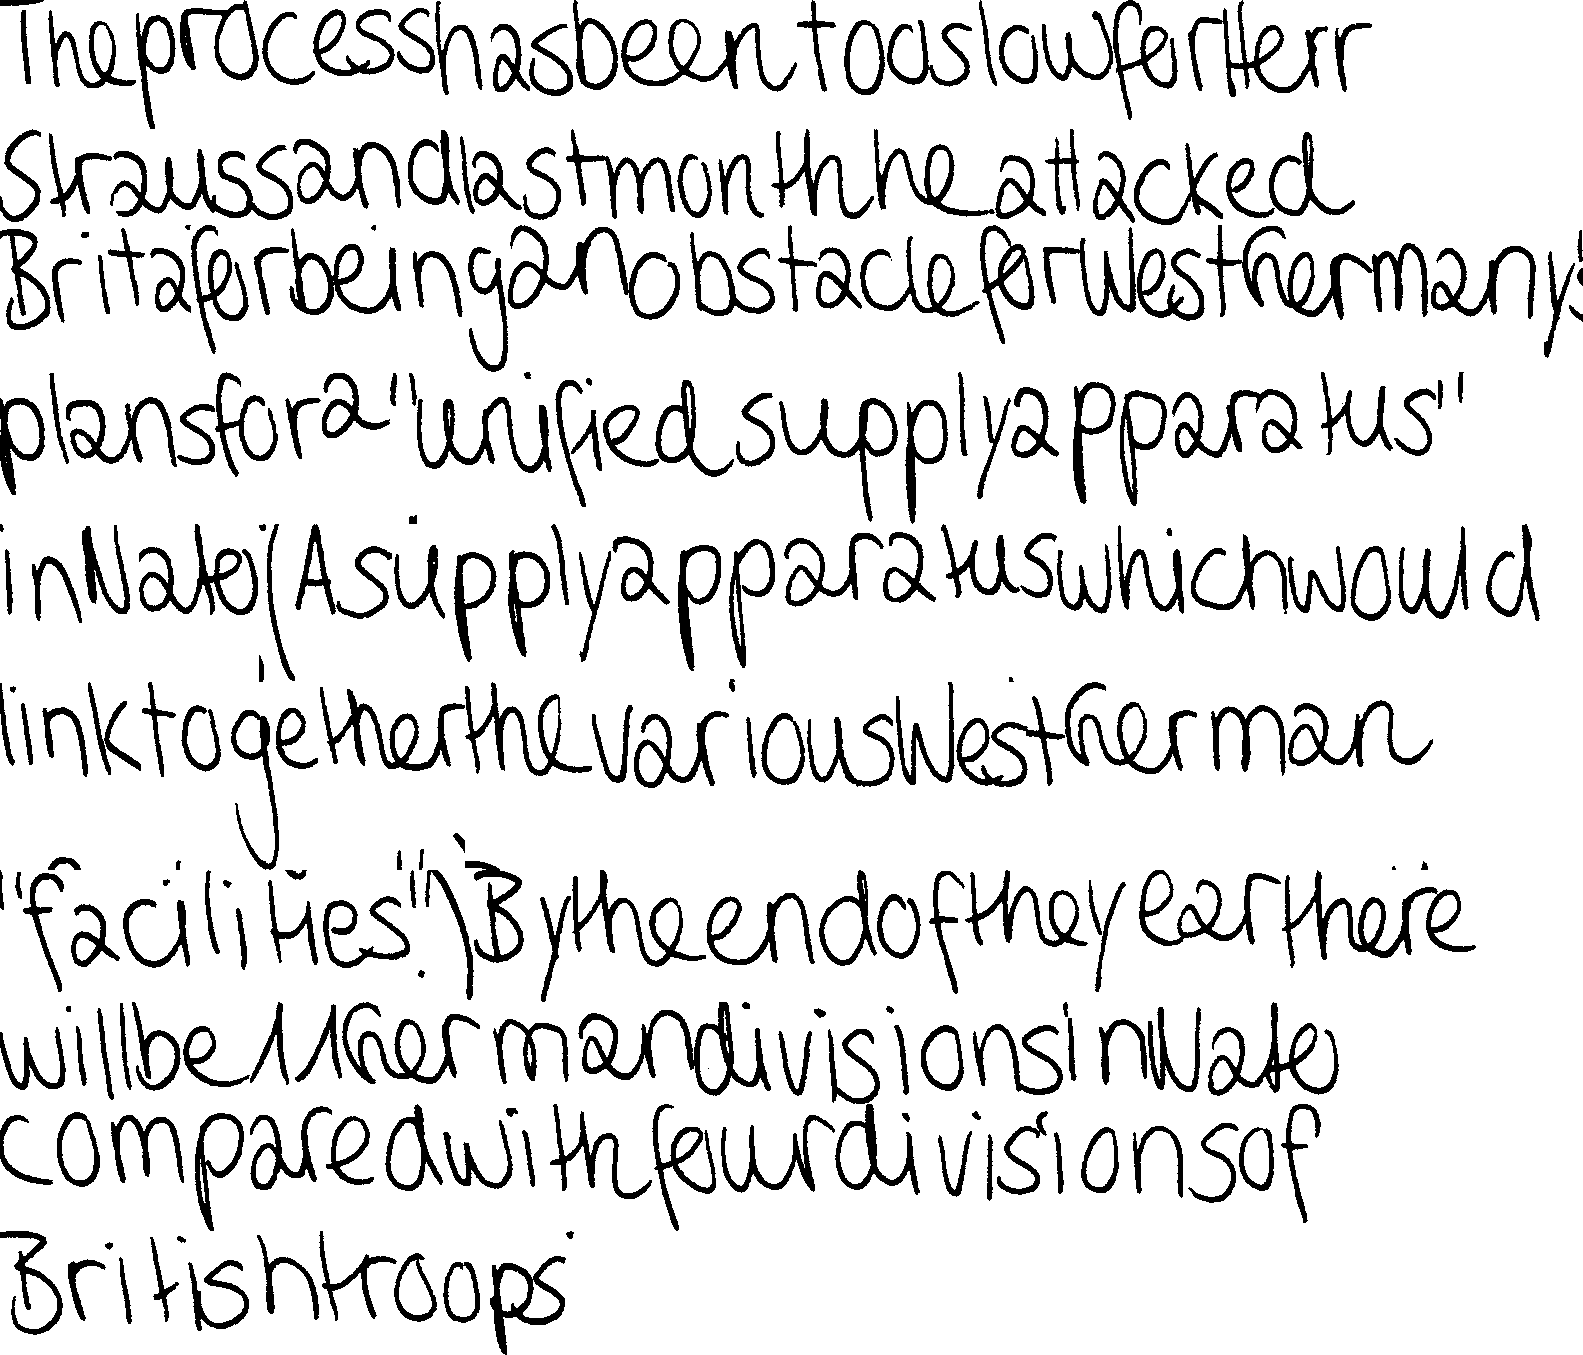 The process has been too slow for Herr
Strauss and last month he attacked
Brita for being an obstacle for West Germany's
plans for a "unified supply apparatus"
in Nato (A supply apparatus which would
link together the various West German
"facilities".) By the end of the year there
will be 11 German divisions in Nato
compared with four divisions of
British troops